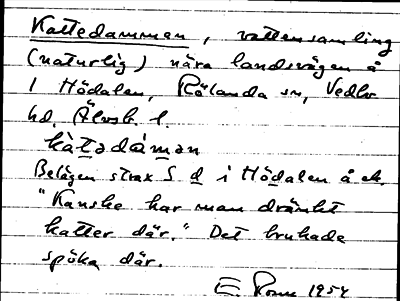 Kattedammen, vattensamling
(naturlig) nära landsvägen å
1 Hödalen, Rölanda sn, Vedbo
hd, Älvsb. l.
kàtədámən
Belägen strax S d i Hödalen å ek.
"Kanske har man dränkt
katter där." Det brukade
spöka där.
E. 1954